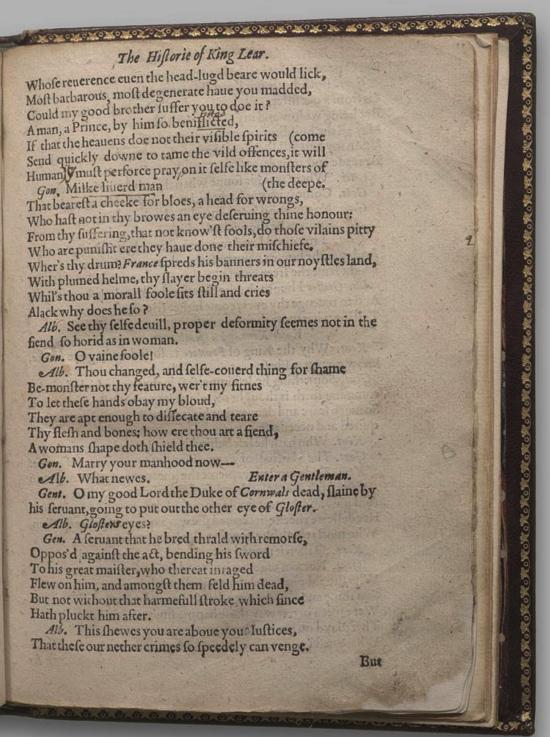 The Historie of King Lear.
Whose reuerence euen the head-lugd beare would lick,
Most barbarous, most degenerate haue you madded,
Could my good brother suffer you to doe it?
A man, a Prince, by him so beniflicted,
If that the heauens doe not their visible spirits (come
Send quickly downe to tame the vild offences, it will
Humanly must perforce pray, on it selfe like monsters of
Gon. Milke liuerd man (the deepe.
That bearest a cheeke for bloes, a head for wrongs,
Who hast not in thy browes an eye deseruing thine honour:
From thy suffering, that not know'st fools, do those vilains pitty
Who are punisht ere they haue done their mischiefe,
Wher's thy drum? France spreds his banners in our noystles land,
With plumed helme, thy slayer begin threats
Whil's thou a morall foole sits still and cries
Alack why does he so?
Alb. See thy selfe deuill, proper deformity seemes not in the
fiend so horid as in woman.
Gon. O vaine foole!
Alb. Thou changed, and selfe-couerd thing for shame
Be-monster not thy feature, wer't my fitnes
To let these hands obay my bloud,
They are apt enough to dissecate and teare
Thy flesh and bones; how ere thou art a fiend,
A womans shape doth shield thee.
Gon. Marry your manhood now—
Alb. What newes. Enter a Gentleman.
Gent. O my good Lord the Duke of Cornwals dead, slaine by
his seruant, going to put out the other eye of Gloster.
Alb. Glosters eyes?
Gen. A seruant that he bred, thrald with remorse,
Oppos'd against the act, bending his sword
To his great maister, who thereat inraged
Flew on him, and amongst them feld him dead,
But not without that harmefull stroke, which since
Hath pluckt him after.
Alb. This shewes you are aboue you Iustices,
That these our nether crimes so speedely can venge.
But